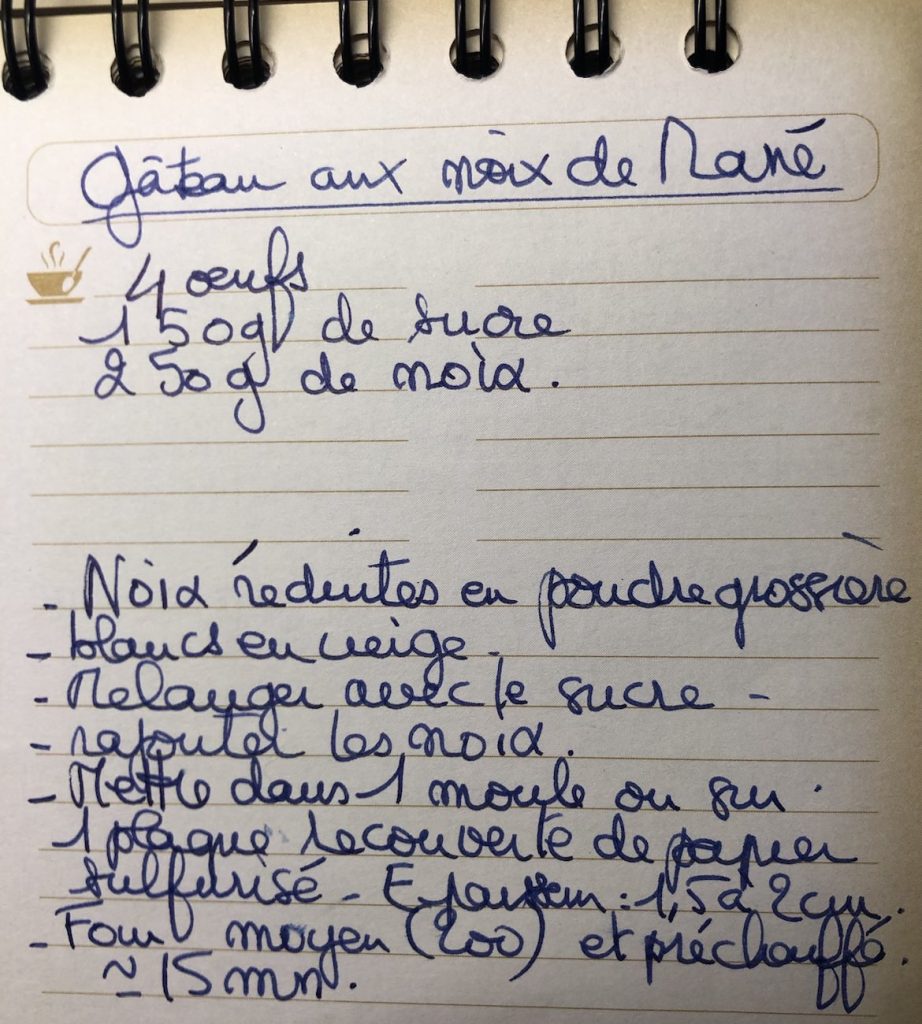 Gâteau aux noix de Mané
4 œufs
150g de sucre
250g de noix.
- Noix réduites en poudre grossière
- blancs en neige -
- Melanger avec le sucre -
- rajouter les noix.
- Mettre dans 1 moule ou sur
1 plaque recouverte de papier
sulfurisé - Epaisseur : 1,5 à 2 cm.
- Four moyen (200) et préchauffé.
≃ 15 mn.